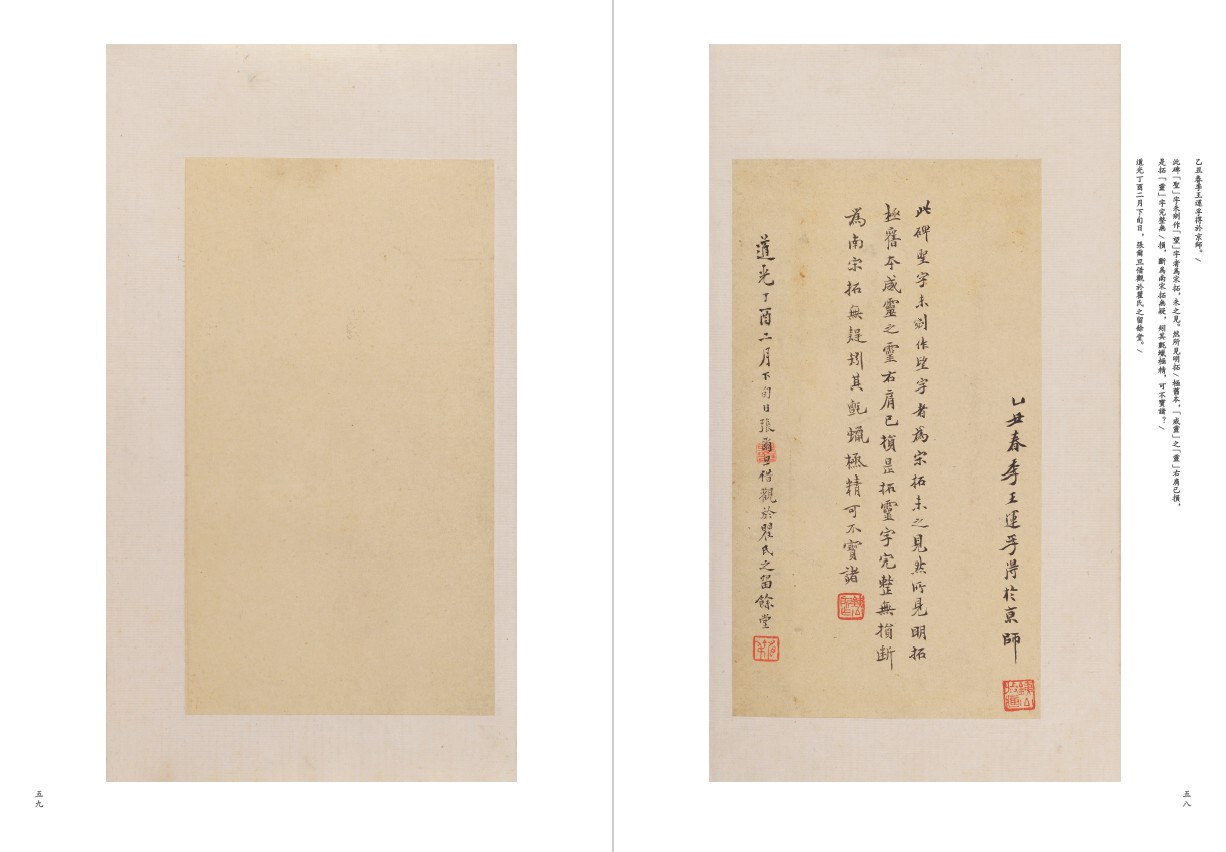 乙丑春季王運孚得於京師。/
此碑「聖」字未剜作「望」字者爲宋拓，未之見。然所見明拓/極舊本，「咸靈」之「靈」右肩已損，
是拓「靈」字完整無/損，斷爲南宋拓無疑，矧其氈蠟極精，可不寶諸？/
道光丁酉二月下旬日，張爾旦借觀於瞿氏之留餘堂。/
乙丑春季王運孚得於京師
此碑聖字未剜作望字者爲宋拓未之見然所見明拓
極舊本咸靈之靈右肩已損是拓靈字完整無損斷
爲南宋拓無疑矧其氈蠟極精可不寶諸
道光丁酉二月下旬日張爾旦借觀於瞿氏之留餘堂
五八
五九